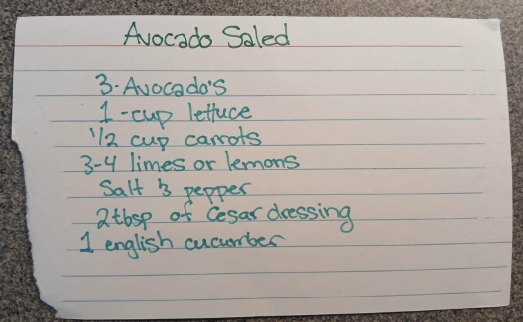 Avocado Saled
3-Avocado's
1-cup lettuce
1/2 cup carrots
3-4 limes or lemons
Salt & pepper
2tbsp of Cesar dressing
1 english cucumber